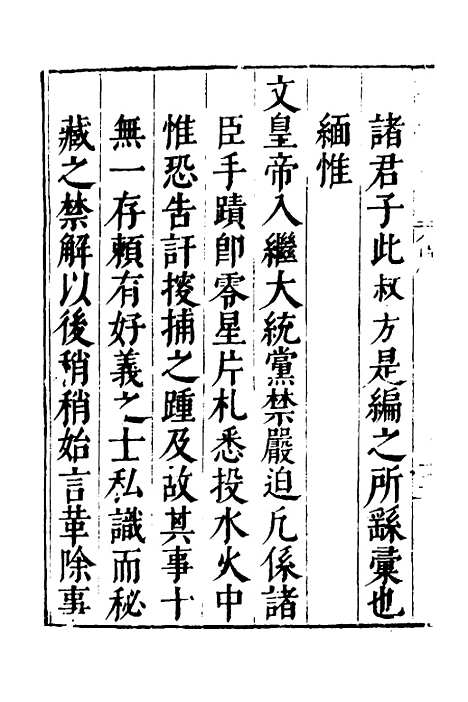 諸君子此叔方是編之所繇彚也
緬惟
文皇帝入繼大統黨禁嚴迫凡係諸
臣手蹟卽零星片札悉投水火中
惟恐告訐搜捕之踵及故其事十
無一存頼有好義之士私識而秘
藏之禁解以後稍稍始言革除事